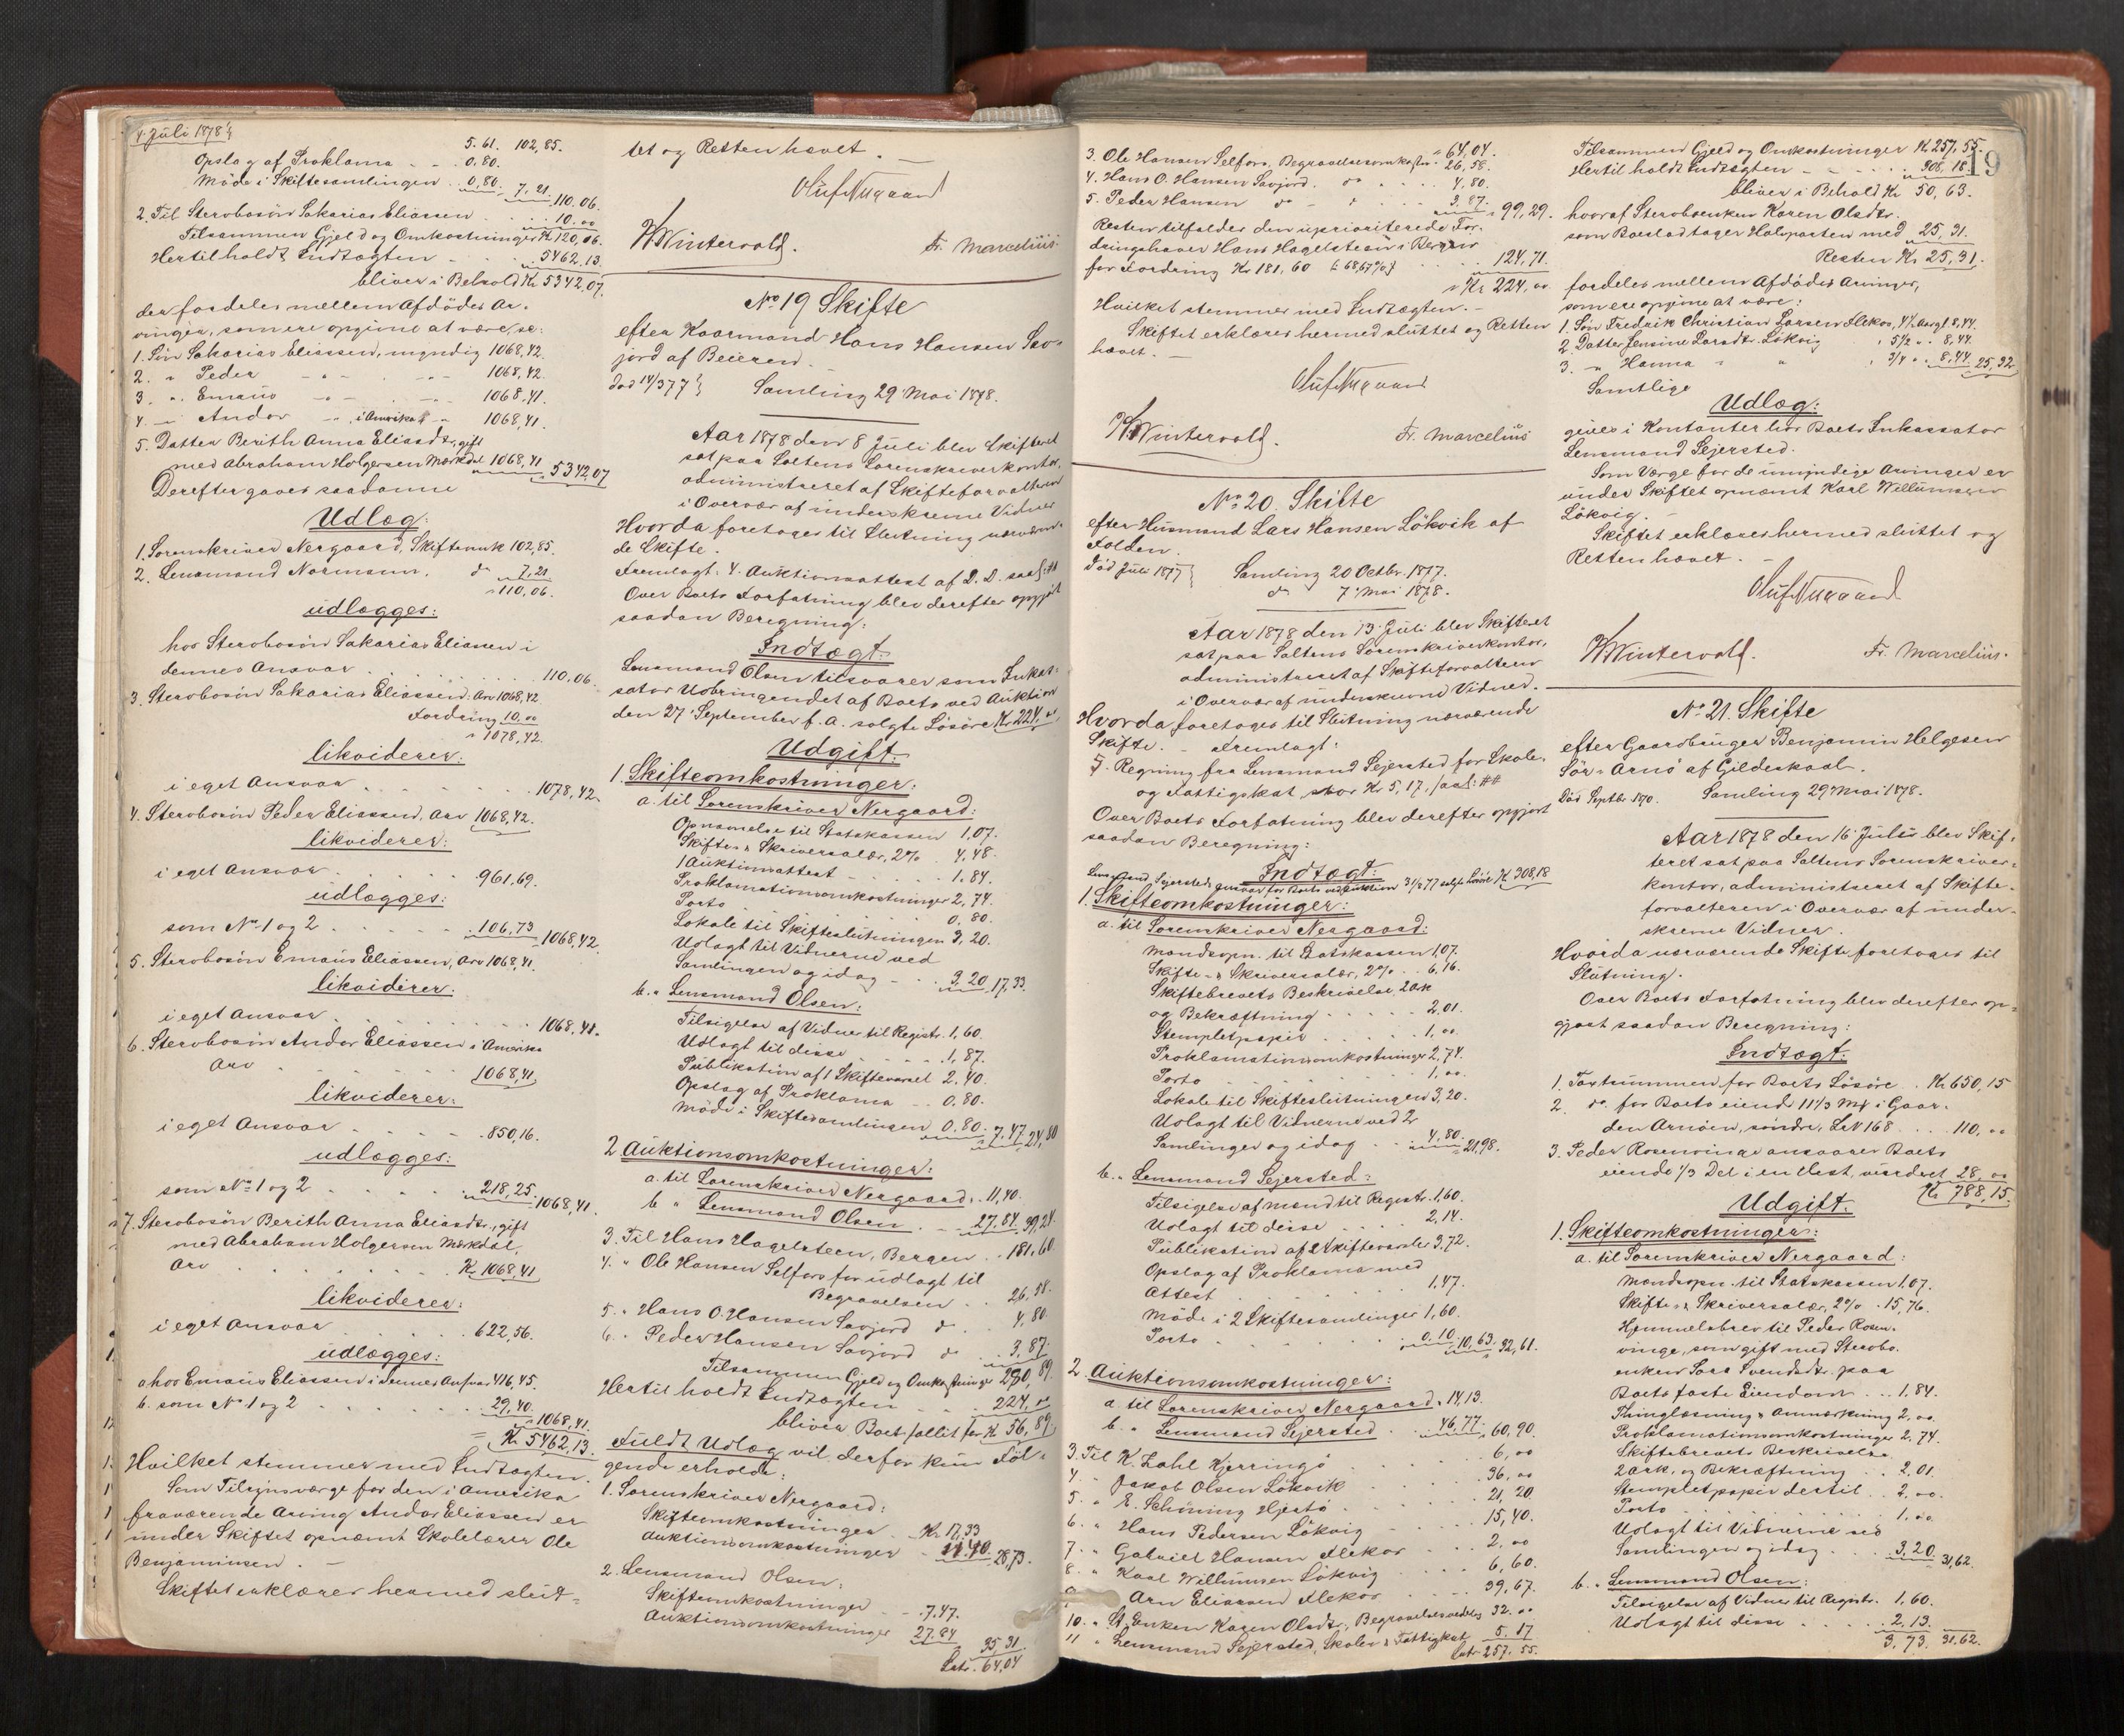 4. Juli 1878
5.61. 102,85.
Opslag af Proklama - - 0.80.
Møde i Skiftesamlingen 0,80. 7,21 110.06.
2. Til Stervbosøn Sakarias Eliassen . . . 10.00
Tilsammen Gjeld og Omkostninger Kr 120,06.
Hertil holdt Indtægten - - 5462.13.
bliver i Behold Kr 5342,07.
der fordeles mellem Afdødes Ar-
vinger, som ere opgivne at være, se:
1. Søn Sakarias Eliassen, myndig 1068,42.
2. " Peder - " - - " - 1068,42.
3. " Emaus - " - - " - 1068,41.
4. " Andor - " i Amerika " - 1068,41.
5. Datter Berith Anna Eliasdr, gift
med Abraham Holgersen Mørkdal 1068,41 5342,07
Derefter gaves saadanne
Udlæg:
1. Sorenskriver Nergaard, Skifteomk 102,85.
2. Lensmand Normann, do 7,21
" 110,06.
udlægges:
hos Stervbosøn Sakarias Eliassen i
dennes Ansvar . . . . 110,06.
3. Stervbosøn Sakarias Eliassen. Arv 1068,42
Fordring 10,00
" 1078,42.
likviderer:
i eget Ansvar . . . . 1078,42.
4. Stervbosøn Peder Eliassen, Arv 1068,42.
likviderer:
i eget Ansvar . . . . 961,69.
udlægges:
som No 1 og 2 . . . . 106,73 1068,42.
5. Stervbosøn Emaus Eliassen, Arv 1068,41.
likviderer:
i eget Ansvar . . . . 1068,41.
6. Stervbosøn Andor Eliassen i Amerika
Arv . . . . 1068,41.
likviderer:
i eget Ansvar - - - - 850,16.
udlægges:
som No 1 og 2 . . . . 218,25 1068,41.
7. Stervbosøn Berith Anna Eliasdr, gift
med Abraham Holgersen Mørkdal,
Arv . . . . Kr 1068,41
likviderer:
i eget Ansvar . . . . 622,56.
udlægges:
a hos Emaus Eliassen i dennes Ansvar 416,45.
b. som No 1 og 2 . . . . 29,40.
" 1068,41.
= Kr 5462,13.
Hvilket stemmer med Indtægten.
Som Tilsynsværge for den i Amerika
fraværende Arving Andor Eliassen er
under Skiftet opnævnt Skolelærer Ole
Benjaminsen. -
Skiftet erklæres hermed slut-
tet og Retten hævet. -
Oluf Nergaard
W Wintervold. Fr. Marcelius
No 19 Skifte
efter Kaarmand Hans Hansen Sav-
jord af Beieren.
død 14/3 77 } Samling 29 Mai 1878.
Aar 1878 den 8 Juli blev Skifteret
sat paa Saltens Sorenskriverkontor,
administreret af Skifteforvalteren
i Overvær af underskrevne Vidner
Hvorda foretoges til Slutning nærværen-
de Skifte.
Fremlagt: 4. Auktionsattest af D. D. saal: ##
Over Boets Forfatning blev derefter opgjort
saadan Beregning:
Indtægt:
Lensmand Olsen tilsvarer som Inkas-
sator Udbringendet af Boets ved Auktion
den 27 September f. A. solgte Løsøre Kr 224,00
Udgift:
1. Skifteomkostninger:
a. til Sorenskriver Nergaard:
Opnævnelse til Statskassen 1,07.
Skifte- & Skriversalær, 2% . 4,48.
1 Auktionsattest - - - 1,84.
Proklamationsomkostninger 2,74.
Porto . . . . 0,80.
Lokale til Skifteslutningen 3,20.
Udlagt til Vidnerne ved
Samlingen og idag - - 3,20 17,33.
b. " Lensmand Olsen:
Tilsigelse af Vidner til Registr. 1,60.
Udlagt til disse - - - 1,87.
Publikation af 1 Skiftevarsel 2,40.
Opslag af Proklama - - 0,80.
Møde i Skiftesamlingen 0,80. 7,47. 24,80
2 Auktionsomkostninger:
a. til Sorenskriver Nergaard. . 11,40.
b " Lensmand Olsen . - 27,84 39,24.
3. Til Hans Hagelsteen, Bergen . . 181,60.
4. " Ole Hansen Selfors for udlagt til
Begravelsen . . 26,58.
5. " Hans O. Hansen Savjord do . 4,80.
6. " Peder Hansen Savjord do . 3,87.
Tilsammen Gjeld og Omkostninger 280,89.
Hertil holdt Indtægten . . . 224,00
bliver Boet fallit for Kr 56,89.
Fuldt Udlæg vil derfor kun Føl-
gende erholde:
1. Sorenskriver Nergaard:
Skifteomkostninger . Kr. 17,33
Auktionsomkostninger - 11.40. 28,73.
2. Lensmand Olsen:
Skifteomkostninger - - 7,47.
Auktionsomkostninger 27.84
35,31
Latr. 64,04
3. Ole Hansen Selfors, Begravelsesomkostn. " 64,04.
26,58.
4. Hans O. Hansen Savjord. do . . . 4,80.
5. Peder Hansen do - " - - 3,87. " 99,29.
Resten tilfalder den uprioriterede For-
dringshaver Hans Hagelsteen i Bergen
for Fordring Kr 181,60 (: 68,67% :) . . . 124,71.
" Kr 224,00
Hvilket stemmer med Indtægten. -
Skiftet erklæres hermed sluttet og Retten
hævet. -
Oluf Nergaard
W Wintervold. Fr. Marcelius
No 20. Skifte
efter Husmand Lars Hansen Løkvik af
Folden.
død Juli 1877 } Samling 20 Octbr. 1877.
do 7 Mai 1878.
Aar 1878 den 13 Juli blev Skifteret
sat paa Saltens Sorenskriverkontor,
administreret af Skifteforvalteren
i Overvær af underskrevne Vidner.
Hvorda foretoges til Slutning nærværende
Skifte. - Fremlagt:
5. Regning fra Lensmand Sejersted for Skole-
og Fattigskat stor Kr 5,17, saal: ##
Over Boets Forfatning blev derefter opgjort
saadan Beregning:
Indtægt:
Lensmand Sejersteds Ansvar for Boets ved Auktion 31/8 77 solgte Løsøre Kr. 308,18
1. Skifteomkostninger:
a. til Sorenskriver Nergaard:
Mandsopn. til Statskassen 1,07.
Skifte- & Skriversalær, 2% . . 6,16.
Skiftebrevets Beskrivelse, 2 Ark
og Bekræftning . . . . 2,01.
Stempletpapir . . . . 1,00.
Proklamationsomkostninger 2,74.
Porto . . . . 1,00.
Lokale til Skifteslutningen 3,20.
Udlagt til Vidnerne ved 2
Samlinger og idag . . 4,80. " 21,98.
b. " Lensmand Sejersted:
Tilsigelse af Mænd til Registr. 1,60.
Udlagt til disse . . . . 2,14.
Publikation af 2 Skiftevarsler 3,72.
Opslag af Proklama med
Attest . . . . 1,47.
Møde i 2 Skiftesamlinger 1,60.
Porto . . . . 0.10. 10,63. 32,61.
2. Auktionsomkostninger:
a. til Sorenskriver Nergaard . 14,13.
b. " Lensmand Sejersted . . 46,77. 60,90.
3. Til K. Zahl Kjerringø . . . 6,00
4. " Jakob Olsen Løkvik . . . 36,00
5. " E. Schøning Hjertø . . . 21,20.
6. " Hans Pedersen Løkvig - - 15,40.
7. " Gabriel Hansen Flekos . . 2,00
8. " Karl Willumsen Løkvig . . . 6,60.
Arn Eliassen Flekos . . . 39,67.
10. " St. Enken Karen Olsdr., Begravelsesudlæg 32.00
11 " Lensmand Sejersted, Skole- & Fattigskat 5.17
Latr 257,55.
19
Tilsammen Gjeld og Omkostninger Kr 257,55.
Hertil holdt Indtægten - - - - 308,18
bliver i Behold Kr 50,63.
hvoraf Stervboenken Karen Olsdr.
som Boeslod tager Halvparten med 25,31.
Resten Kr 25,31.
fordeles mellem Afdødes Arvinger,
som ere opgivne at være:
1. Søn Fredrik Christian Larsen Flekos, 4 1/2 Aar gl. 8,44.
2. Datter Jensine Larsdr. Løkvig " 5 1/2 " " 8,44.
3. " Hanna " " " 3/4 " " 8,44. 25,32.
Samtlige
Udlæg:
gives i Kontanter hos Boets Inkassator
Lensmand Sejersted.
Som Værge for de umyndige Arvinger er
under Skiftet opnævnt Karl Willumsen
Løkvig. -
Skiftet erklæres hermed sluttet og
Retten hævet. -
Oluf Nergaard
W Wintervold. Fr. Marcelius.
No 21. Skifte
efter Gaardbruger Benjamin Helgesen
Sør-Arnø af Gildeskaal.
Død Septbr 1870. Samling 29 Mai 1878.
Aar 1878 den 16 Juli blev Skif-
teret sat paa Saltens Sorenskriver-
kontor, administreret af Skifte-
forvalteren i Overvær af under-
skrevne Vidner.
Hvorda nærværende Skifte foretoges til
Slutning.
Over Boets Forfatning blev derefter op-
gjort saadan Beregning:
Indtægt:
1. Taxtsummen for Boets Løsøre . Kr 650,15
2. do. for Boets eiende 11 1/3 Mk i Gaar-
den Arnøen, søndre, LN 168 . . . 110,00
3. Peder Rosenvinge ansvarer Boets
eiende 1/3 Del i en Hest, vurderet 28,00
Kr 788,15.
Udgift:
1. Skifteomkostninger:
a. til Sorenskriver Nergaard:
Mandsopn. til Statskassen 1,07.
Skifte- & Skriversalær, 2% . 15,76.
Hjemmelsbrev til Peder Rosen-
vinge, som gift med Stervbo-
enken Sara Svendsdr. paa
Boets faste Eiendom . . . 1,84.
Thinglæsning & Anmærkning 2,00.
Proklamationsomkostninger 2,74.
Skiftebrevets Beskrivelse
2 Ark, og Bekræftning . . 2,01.
Stempletpapir dertil . . 2,00.
Porto . . . . 1.00
Udlagt til Vidnerne ved
Samlingen og idag . . . 3,20. 31,62.
b. " Lensmand Olsen:
Tilsigelse af Vidner til Registr. 1,60.
Udlagt til disse . . . 2,13.
3,73. 31,62.